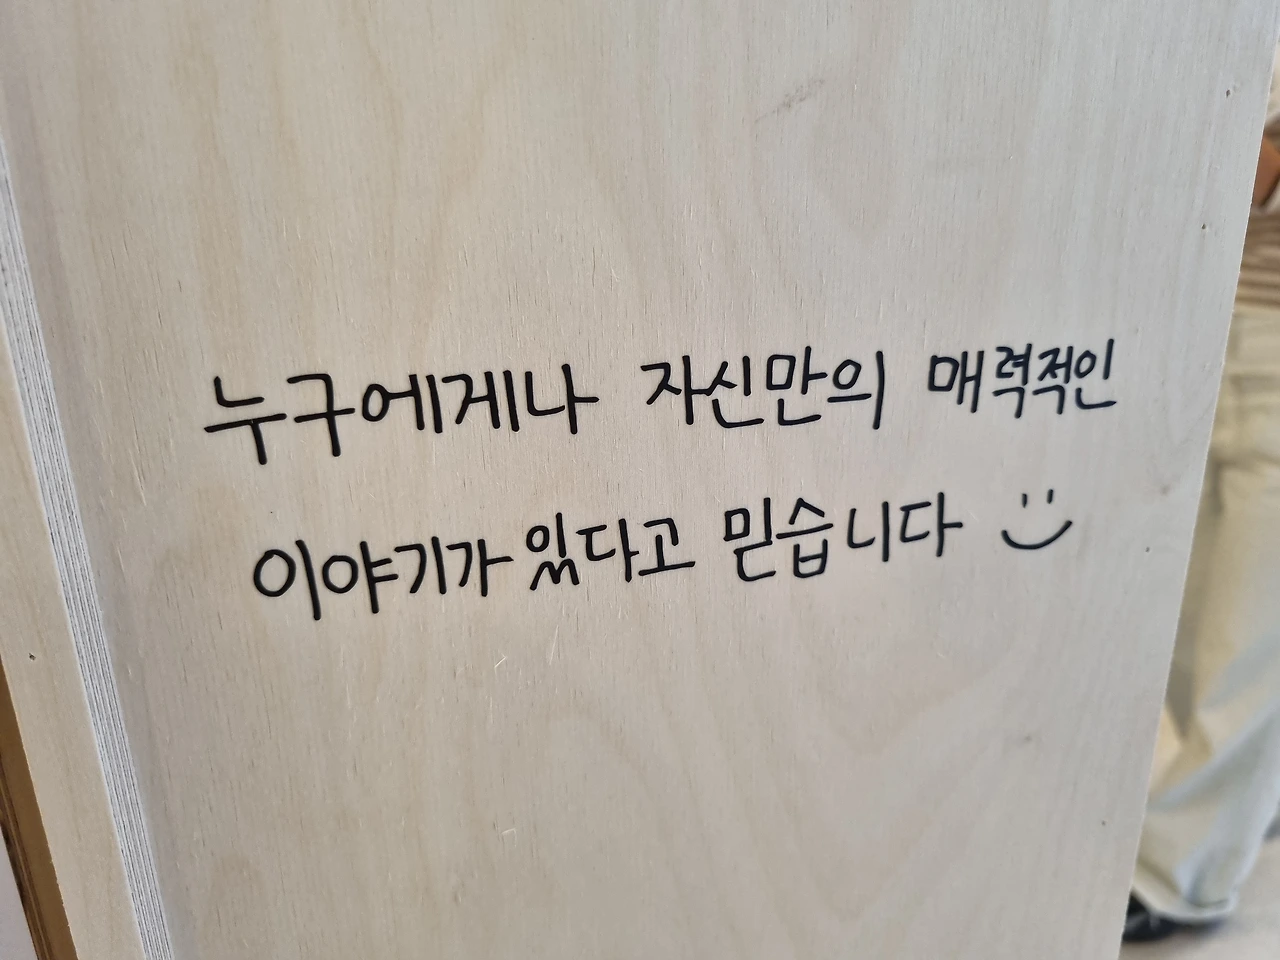 누구에게나 자신만의 매력적인
이야기가 있다고 믿습니다